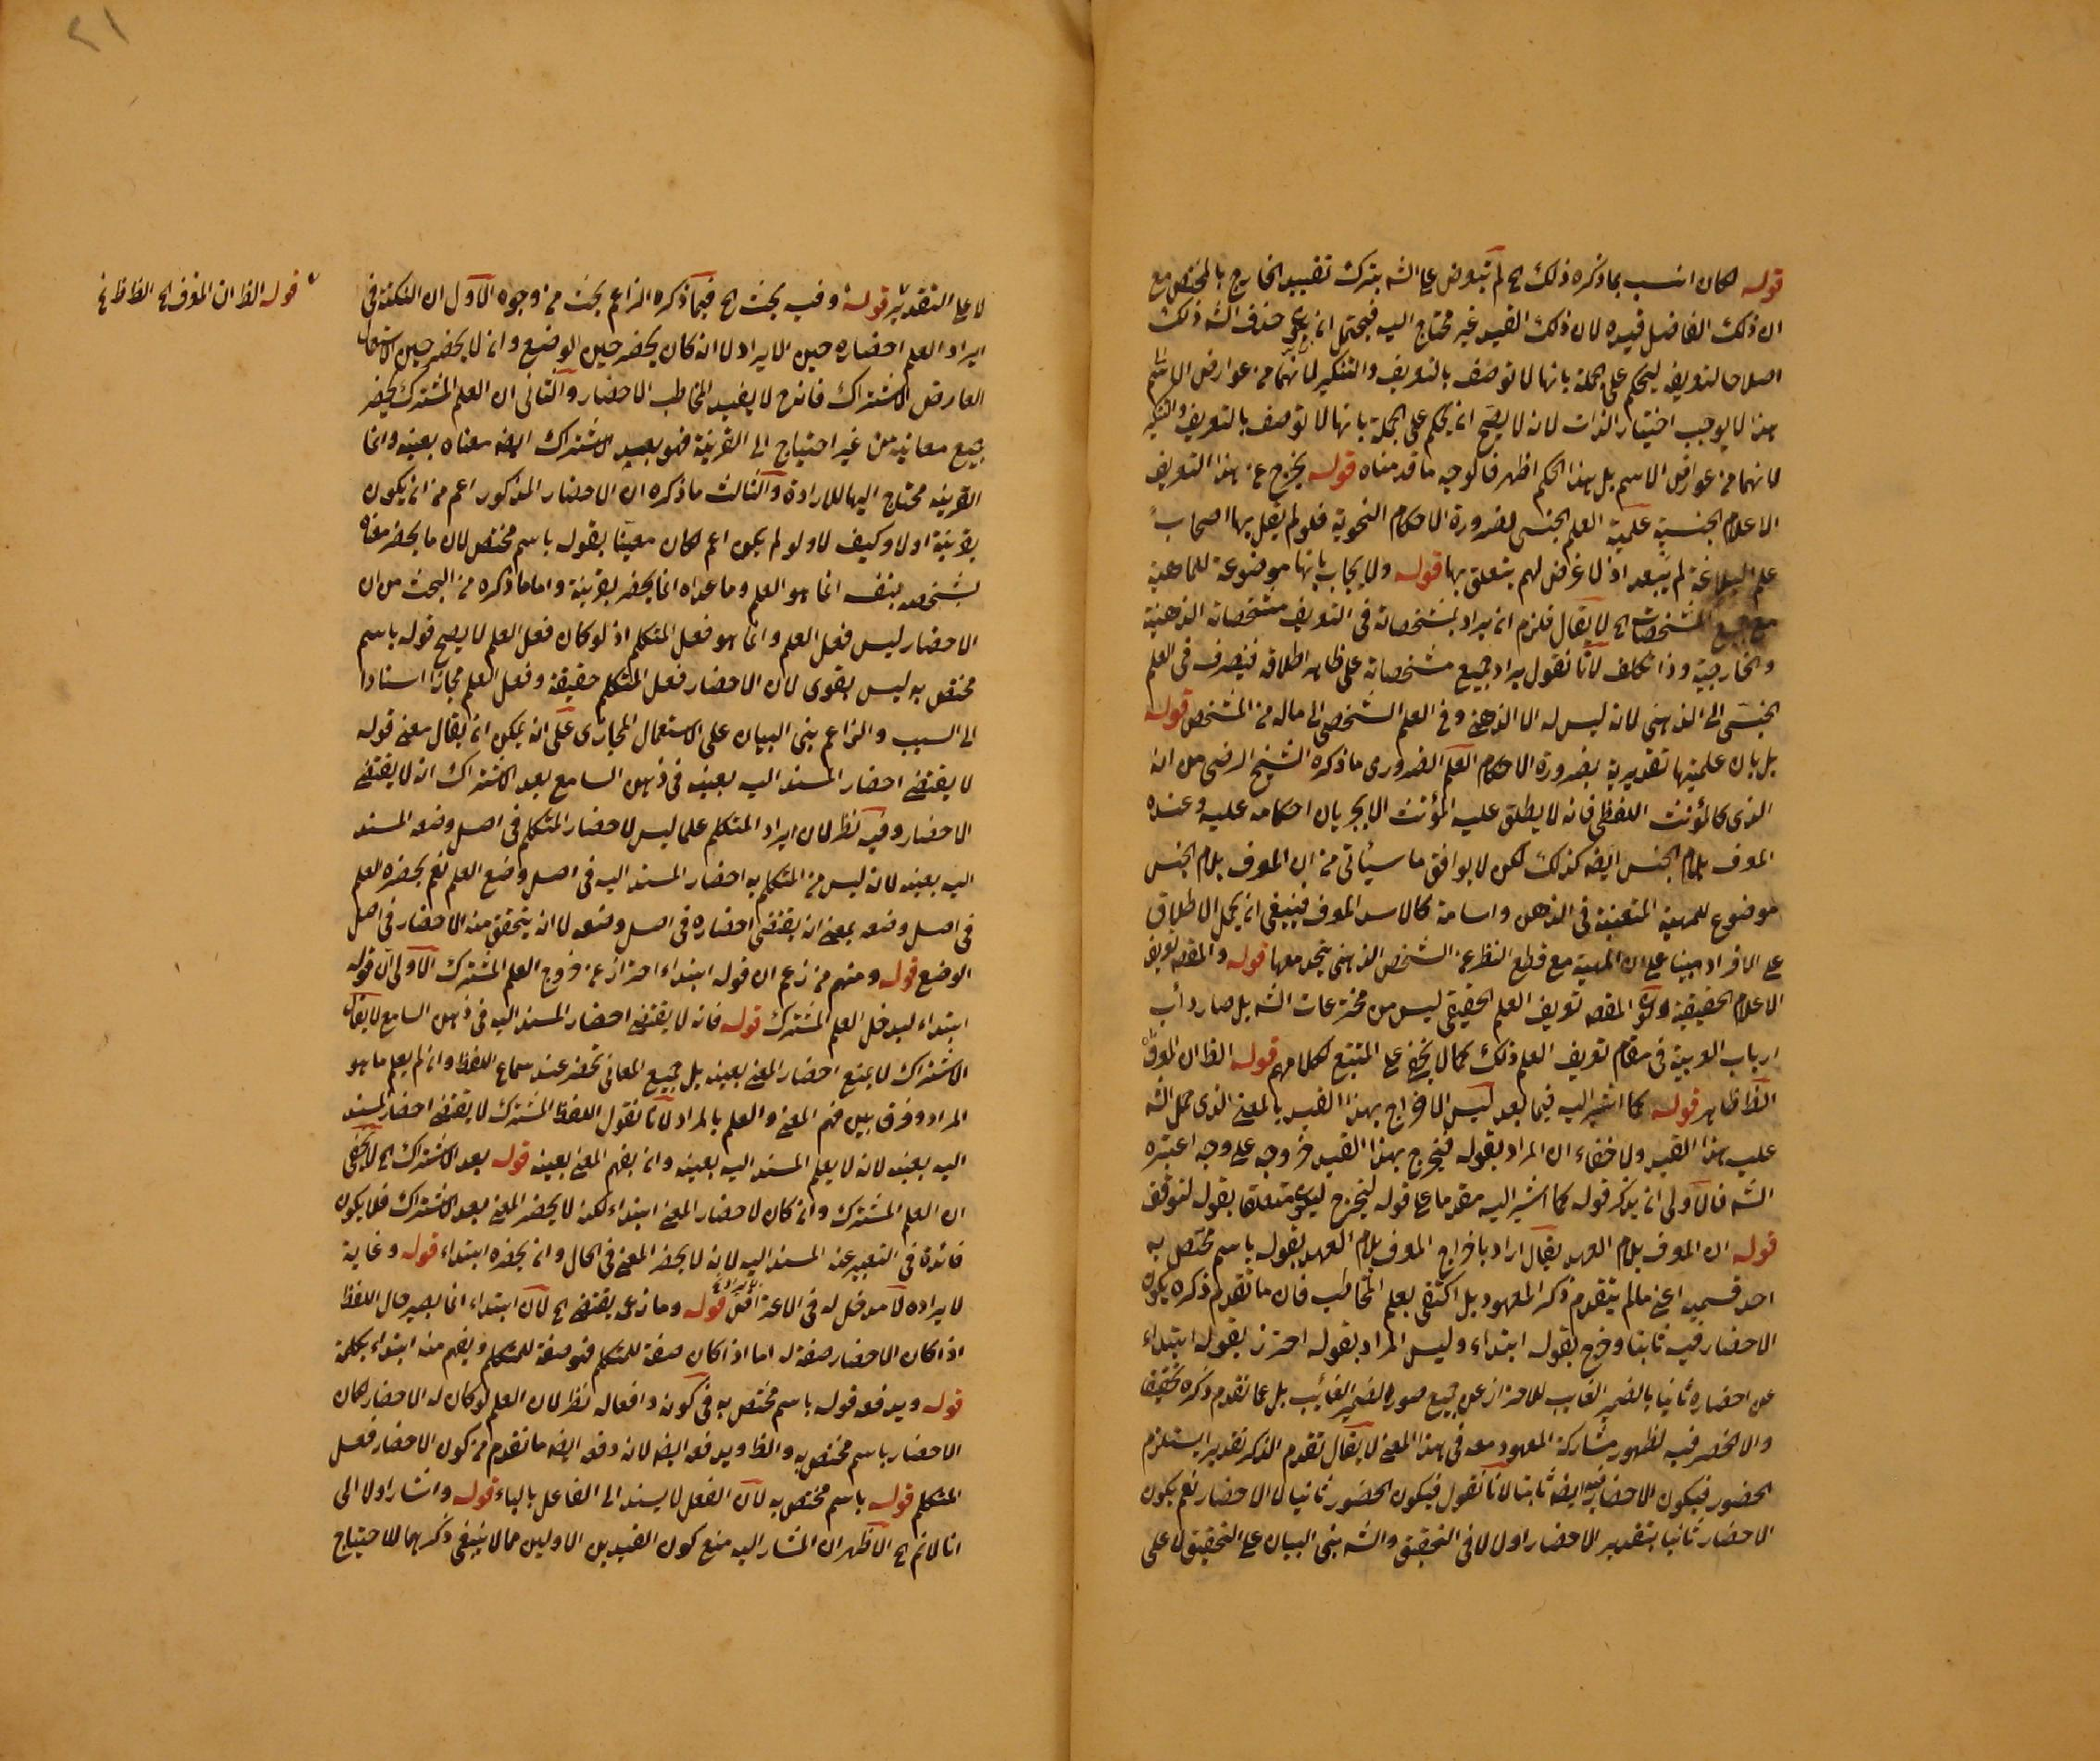 قوله لكان انسب بما ذكره ذلك الخ لم يتعرض على الشه بترك تقييد الخارج بالمختص مع
ان ذلك الفاضل قيده لان ذلك القيد غير محتاج اليه فيحتمل ان يكون حذف الشه ذلك
اصلاحا لتعريفه ليحكم على الجملة بانها لا توصف بالتعريف والتنكير لانهما من عوارض الاسم
هذا لا يوجب اختيار الذات لانه لا يصح ان يحكم على الجملة بانها لا توصف بالتعريف والتنكير
لانهما من عوارض الاسم بل هذا الحكم اظهر فالوجه ما قدمناه قوله يخرج عن هذا التعريف
الاعلام الجنسية علمية العلم الجنسى لضرورة الاحكام النحوية فلو لم يقل بها اصحاب
علم البلاغة لم يبعد اذ لا غرض لهم يتعلق بها قوله ولا يجاب بانها موضوعة للماهية
مع جميع المشخصات الخ لا يقال فلزم ان يراد بمشخصاته فى التعريف مشخصاته الذهنية
والخارجية وذا تكلف لانا نقول يراد جميع مشخصاته على ظاهر اطلاقه فينصرف فى العلم
الجنسى الى الذهنى لانه ليس له الا الذهنى وفى العلم الشخصى الى ماله من المشخص قوله
بل بان علميتها تقديرية بضرورة الاحكام العلم الضرورى ما ذكره الشيخ الرضى من انه
الذى كالمؤنث اللفظى فانه لا يطلق عليه المؤنث الا بجريان احكامه عليه وعنده
المعرف بلام الجنس ايضه كذلك لكن لا يوافق ما سيأتى من ان المعرف بلام الجنس
موضوع للمهية المتعينة فى الذهن واسامة كالاسد المعرف فينبغى ان يحمل الاطلاق
على الافراد مبنيا على ان المهية مع قطع النظر عن الشخص الذهنى يتحد معها قوله والمقصه تعريف
الاعلام الحقيقية وكون المقصه تعريف العلم الحقيقى ليس من مخترعات الشه بل صار دأب
ارباب العربية فى مقام تعريف العلم ذلك كما لا يخفى على المتتبع لكلامهم قوله الظ ان المعرف
الظ ظاهر قوله كما اشير اليه فيما بعد ليس الاخراج بهذا القيد بالمعنى الذى حمل الشه
عليه هذا القيد ولا خفاء ان المراد بقوله فيخرج بهذا القيد خروجه على وجه اعتبره
الشه فالاولى ان يذكر قوله كما اشير اليه مقدما على قوله ليخرج ليكون متعلقا بقوله لتوقف
قوله ان المعرف بلام العهد يقال اراد باخراج المعرف بلام العهد بقوله باسم مختص به
احد قسميه اعنى مالم يتقدم ذكر المعهود بل اكتفى بعلم المخاطب فان ما تقدم ذكره يكون
الاحضار فيه ثانيا وخرج بقوله ابتداء وليس المراد بقوله احترز بقوله ابتداء
عن احضاره ثانيا بالضمير الغايب للاحتراز عن جميع صور الضمير الغائب بل عما تقدم ذكره تحقيقا
والا لحضر فيه لظهور مشاركة المعهود معه فى هذا المعنى لا يقال تقدم الذكر تقديرا يستلزم
الحضور فيكون الاحضار فيه ايضه ثانيا لانا نقول فيكون الحضور ثانيا لا الاحضار نعم يكون
الاحضار ثانيا بتقدير الاحضار اولا لا فى التحقيق والشه بنى البيان على التحقيق لا على
لا على التقدير قوله وفيه بحث الخ فيما ذكره الزاعم بحث من وجوه الاول ان النكتة فى
ايراد العلم احضاره حين الايراد لا انه كان يحضر حين الوضع وان لا يحضر حين الاستعمال
العارض الاشتراك فانه ح لا يفيد المخاطب الاحضار والثانى ان العلم المشترك يحضر
جميع معانيه من غير احتياج الى القرينة فهو بعيد الاشتراك ايضه معناه بعينه وانما
القرينه محتاج اليها للارادة والثالث ما ذكره ان الاحضار المذكور اعم من ان يكون
بقرينة او لا وكيف لا ولو لم يكن اعم لكان مغنيا بقوله باسم مختص لان ما يحضر معناه
بشخصه بنفسه انما هو العلم وما عداه انما يحضر بقرينة واما ما ذكره من البحث من ان
الاحضار ليس فعل العلم وانما هو فعل المتكلم اذ لو كان فعل العلم لا يصح قوله باسم
مختص به ليس بقوى لان الاحضار فعل المتكلم حقيقة وفعل العلم مجازا اسنادا
الى السبب والزاعم بنى البيان على الاستعمال المجازى على انه يمكن ان يقال معنى قوله
لا يقتضى احضار المسند اليه بعينه فى ذهن السامع بعد الاشتراك انه لا يقتضى
الاحضار وفيه نظر لان ايراد المتكلم علما ليس لاحضار المتكلم فى اصل وضعه المسند
اليه بعينه لانه ليس من المتكلم به احضار المسند اليه فى اصل وضع العلم نعم يحضره العلم
فى اصل وضعه بمعنى ان يقتضى احضاره فى اصل وضعه لا انه يتحقق منه الاحضار فى اصل
الوضع قوله ومنهم من زعم ان قوله ابتداء احتراز عن خروج العلم المشترك الاولى ان قوله
ابتداء ليدخل العلم المشترك قوله فانه لا يقتضى احضار المسند اليه فى ذهن السامع لا يقال
الاشتراك لا يمنع احضار المعنى بعينه بل جميع المعانى تحضر عند سماع اللفظ وان لم يعلم ما هو
المراد وفرق بين فهم المعنى والعلم بالمراد لانا نقول اللفظ المشترك لا يقتضى احضار المسند
اليه بعينه لانه لا يعلم المسند اليه بعينه وان يفهم المعنى بعينه قوله بعد الاشتراك الخ لا يخفى
ان العلم المشترك وان كان لاحضار المعنى ابتداء لكنه لا يحضر المعنى بعد الاشتراك فلا يكون
فائدة فى التعبير عن المسند اليه لانه لا يحضر المعنى فى الحال وان يحضره ابتداء قوله وغاية
لايراده لا مدخل له فى الاعتراض قوله وما زعمه يقتضى الخ لان ابتداء انما يصير حال اللفظ
اذا كان الاحضار صفة له اما اذا كان صفة للمتكلم فهو صفة للمتكلم ويفهم منه ابتداء بكلمة
قوله ويدفعه قوله باسم مختص به فى كونه دافعا له نظر لان العلم لو كان له الاحضار لكان
الاحضار باسم مختص به والظ ويدفعه ايضه لانه دفعه ايضه ما تقدم من كون الاحضار فعل
المتكلم قوله باسم مختص به لان الفعل لا يسند الى الفاعل بالباء قوله واشار اولا الى
انا لا نم الخ الاظهر ان المشار اليه منع كون القيدين الاولين مما لا ينبغى ذكرهما للاحتياج
قوله الظ ان المعرف الخ الظ ظ نخ
٢١